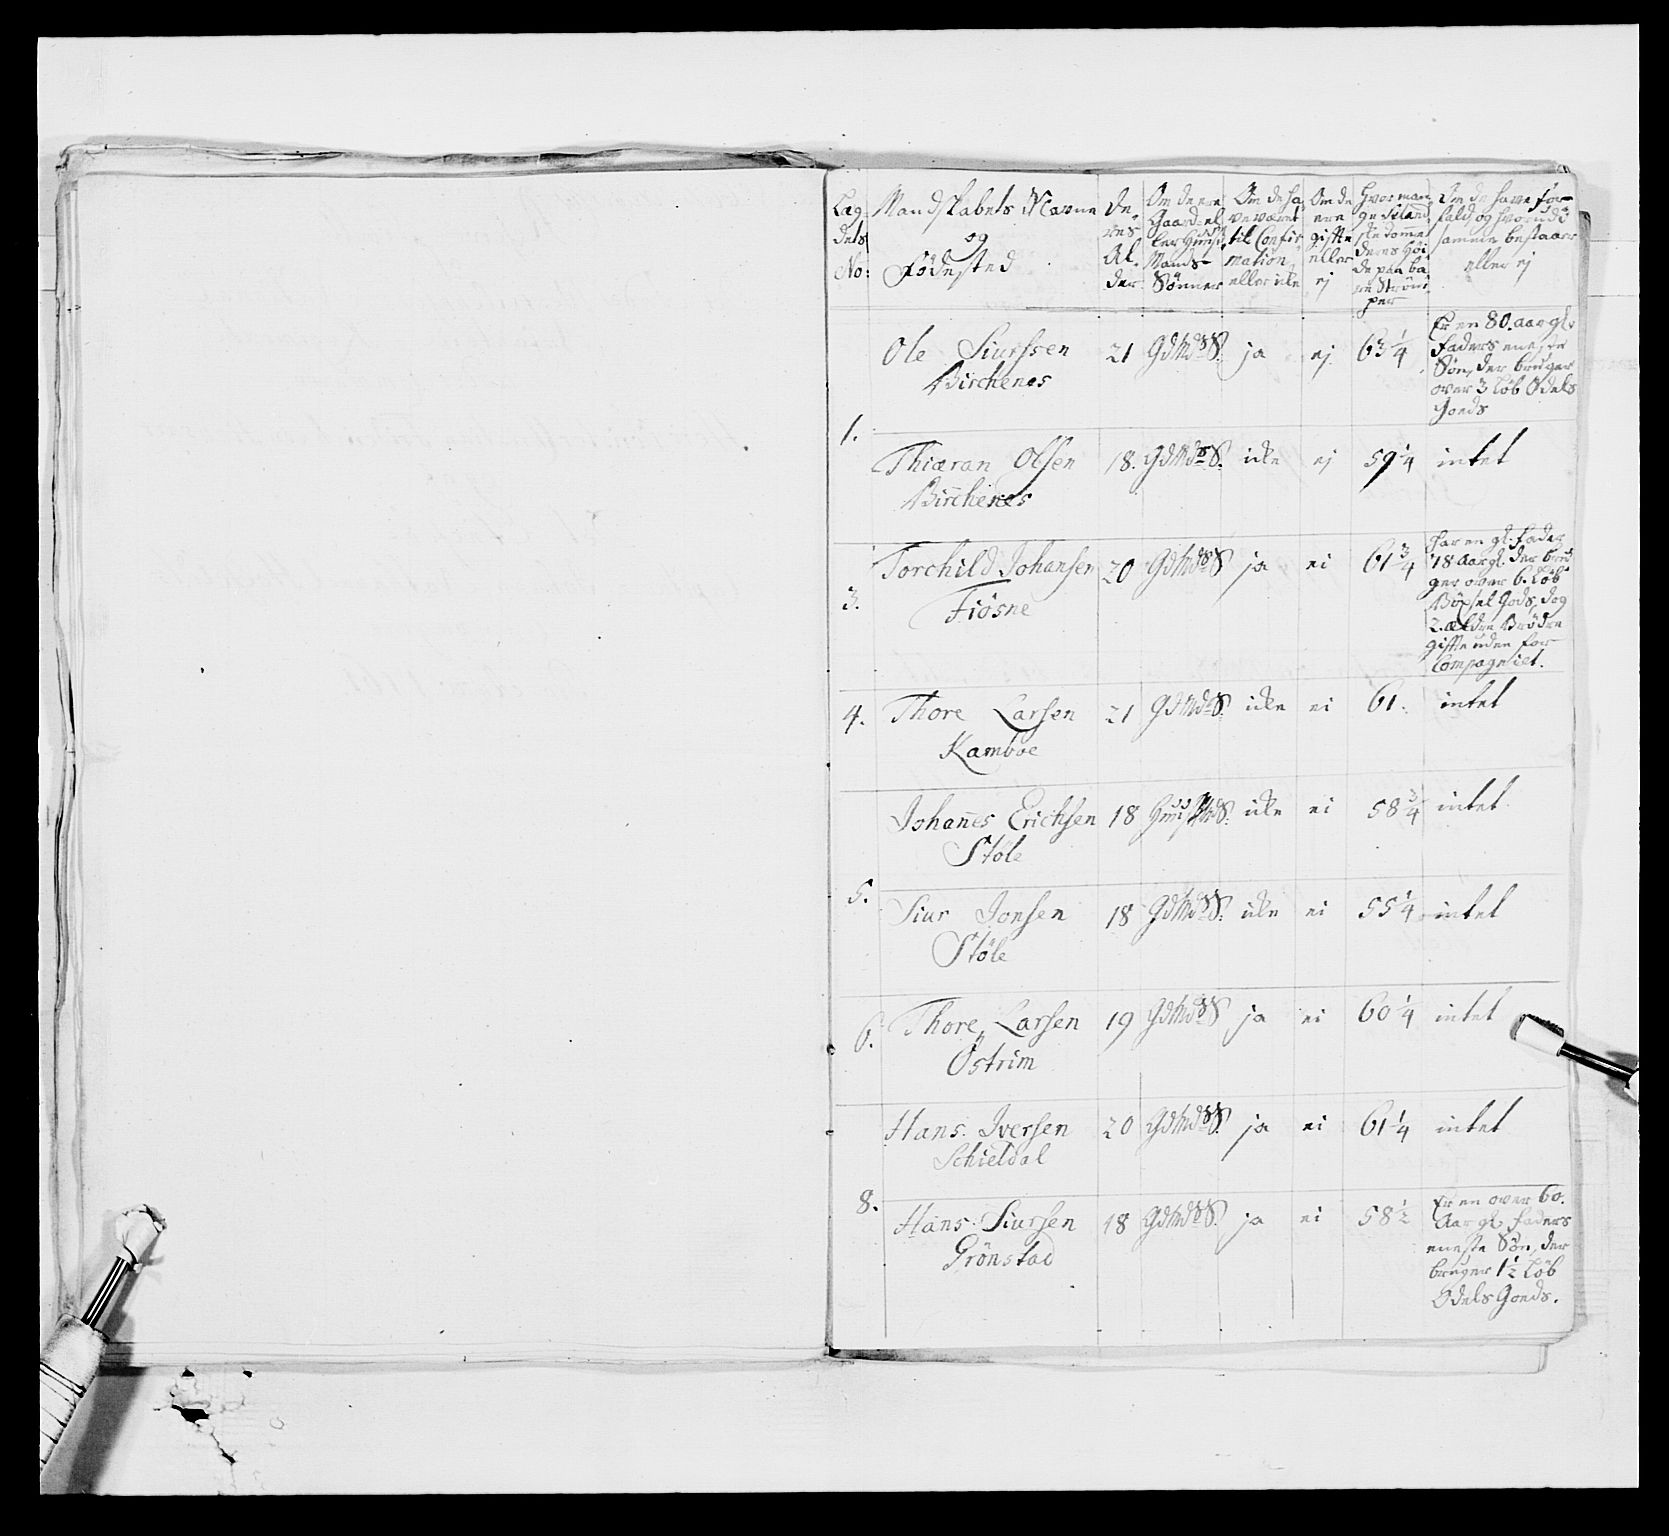 Læg
dets
No:
Mandskabets Navne
og
Fødested
De
res
Al
der
Om de ere
Gaard el
ler Huus
Mands
Sønner
Om de ha
ve været
til Confir
mation
eller icke
Om de
ere
gifte
eller
ej
Hvor man
ge Siland
ske tomme
deres Høi
de paa ba
re Ström
per
Om de have for
fald og hvorudi
samme bestaaer
eller ej
1.
Ole Siurssen
Birchenes
21 GdMds S. ja ej 63 1/4
Er en 80. aar gl.
Faders eneste
Søn, der bruger
over 3 Løb Odels
Goeds
Thiæran Olsen
Birchenes
18. GdMds S. icke ej 59 1/4 intet
3.
Torchild Johansen
Fiösne
20 GdMds S ja ei 61 3/4
har en gl. Fader
78 Aar gl. der bru
ger over 6. Løb
Böxsel Gods, dog
2. ældre Brödre
gifte uden for
Compagniet.
4.
Thore Larsen
Kamboe
21 GdMds S. icke ei 61. intet
5.
Johannes Erichsen
Støle
18 Huus Mds S. icke ei 58 3/4 intet
Siur Jonsen
Støle
18 GdMds S. icke ei 55 1/4 intet
6.
Thore Larsen
Östrim
19 GdMds S ja ei 60 1/4 intet
8.
Hans Iversen
Schieldal
20 GdMds S. ja ei 61 1/4 intet
Hans Siursen
Grönstad
18 GdMds S. ja ei 58 1/2
Er en over 60.
Aar gl. Faders
eneste Søn, der
bruger 1 1/2 Løb
Odels Goeds.